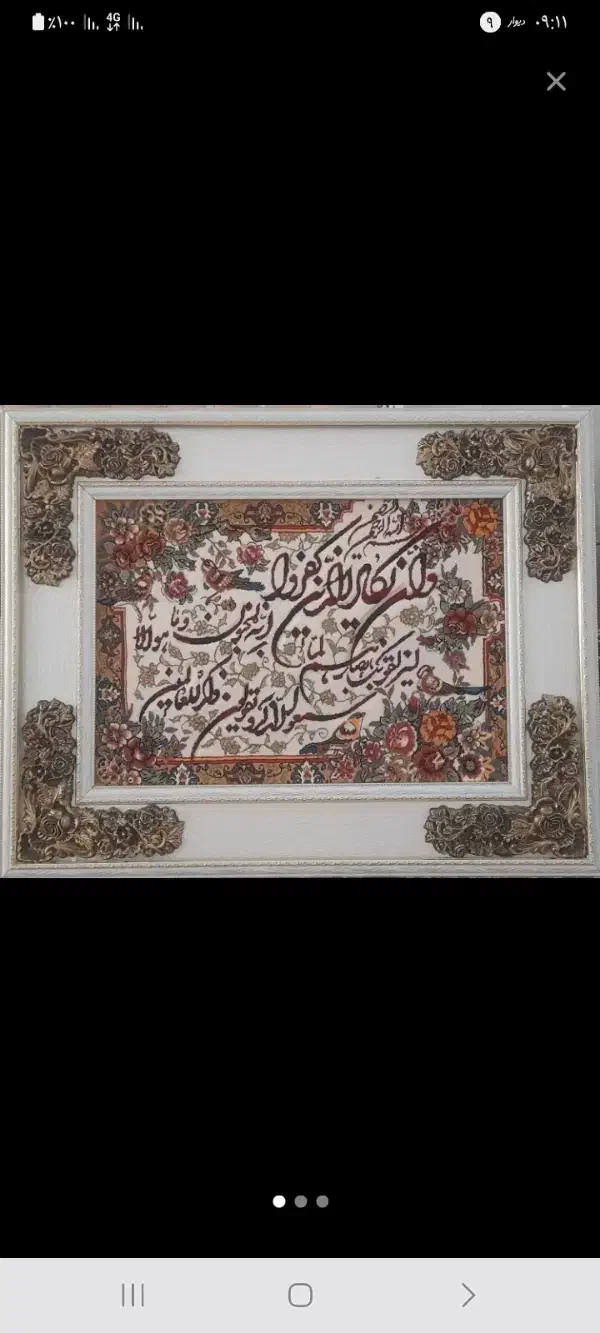 ٪۱۰۰ 4G ۹ دیوار ۰۹:۱۱
بسم الله الرحمن الرحیم
وان یکاد الذین کفروا
لیزلقونک بابصارهم لما
سمعوا الذکر ویقولون
انه لمجنون وما هو الا
ذکر للعالمین